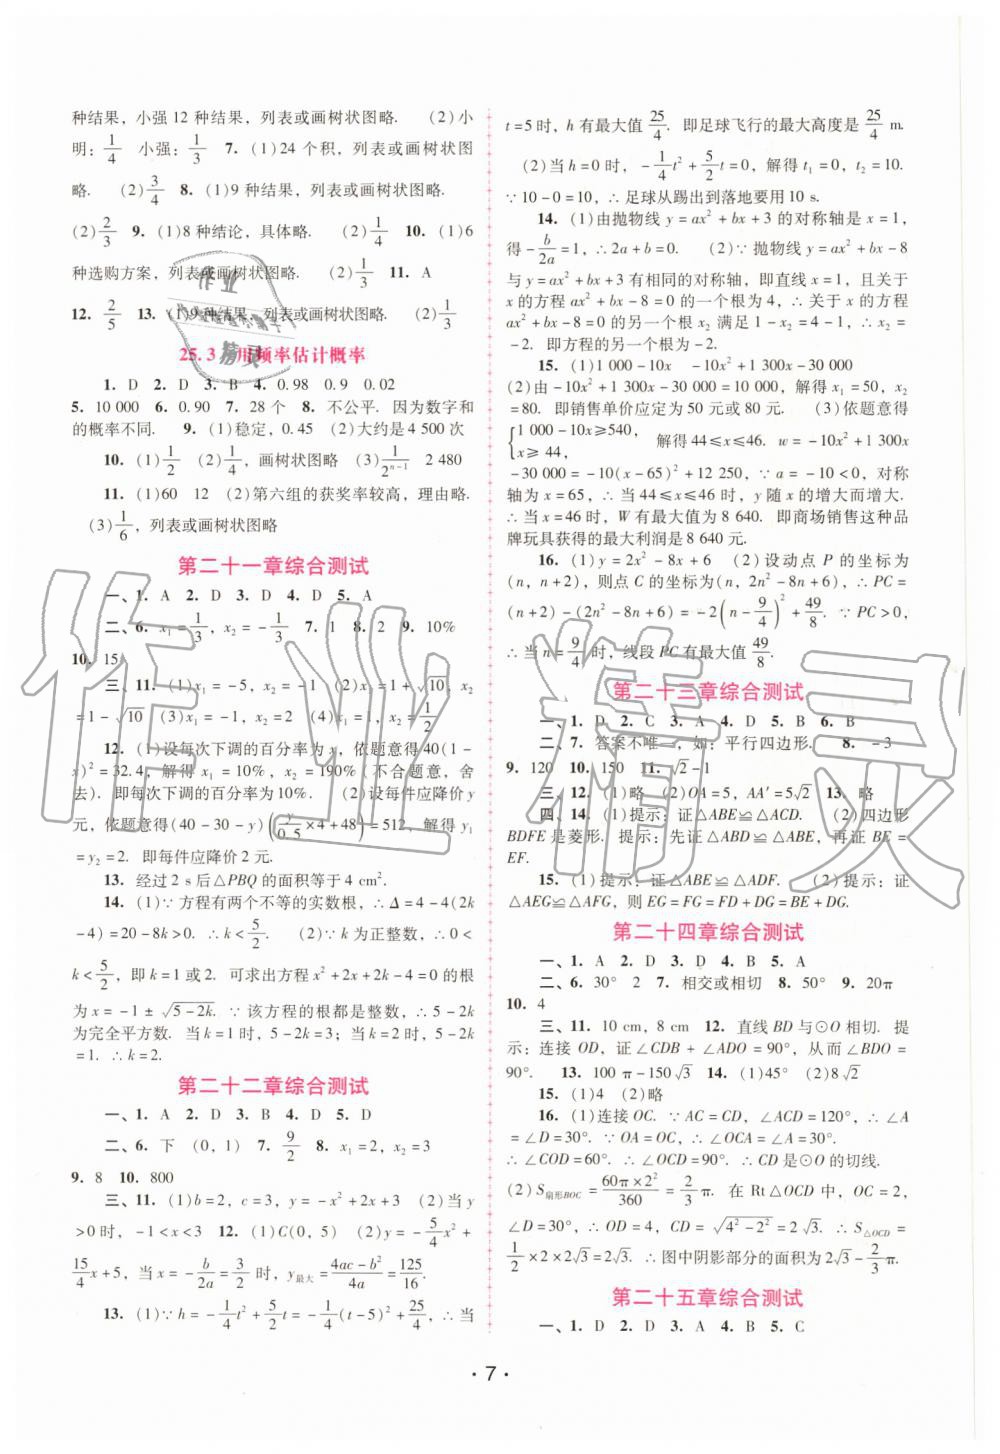 种结果，小强 12 种结果，列表或画树状图略. (2)小
明：1/4 小强：1/3 7. (1)24 个积，列表或画树状图
略. (2)3/4 8. (1)9 种结果，列表或画树状图略.
(2)2/3 9. (1)8 种结论，具体略. (2)1/4 10. (1)6
种选购方案，列表或画树状图略. (2)1/3 11. A
12. 2/5 13. (1)9 种结果，列表或画树状图略. (2)1/3
25.3 用频率估计概率
1. D 2. D 3. B 4. 0.98 0.9 0.02
5. 10 000 6. 0.90 7. 28 个 8. 不公平. 因为数字和
的概率不同. 9. (1)稳定，0.45 (2)大约是 4 500 次
10. (1)1/2 (2)1/4，画树状图略 (3)1/2ⁿ⁻¹ 2 480
11. (1)60 12 (2)第六组的获奖率较高，理由略.
(3)1/6，列表或画树状图略
第二十一章综合测试
一、1. A 2. D 3. D 4. D 5. A
二、6. x₁=1/3，x₂=-1/3 7. 1 8. 2 9. 10%
10. 15
三、11. (1)x₁=-5，x₂=-1 (2)x₁=1+√10，x₂
=1-√10 (3)x₁=-1，x₂=2 (4)x₁=x₂=1/2
12. (1)设每次下调的百分率为 x，依题意得40(1-
x)²=32.4，解得 x₁=10%，x₂=190%(不合题意，舍
去). 即每次下调的百分率为10%. (2)设每件应降价 y
元，依题意得(40-30-y)(y/0.5×4+48)=512，解得 y₁
=y₂=2. 即每件应降价 2 元.
13. 经过 2 s 后△PBQ 的面积等于 4 cm².
14. (1)∵ 方程有两个不等的实数根，∴ Δ=4-4(2k
-4)=20-8k>0. ∴ k<5/2. (2)∵ k 为正整数，∴ 0<
k<5/2，即 k=1 或 2. 可求出方程 x²+2x+2k-4=0 的根
为 x=-1±√(5-2k). ∵ 该方程的根都是整数，∴ 5-2k
为完全平方数. 当 k=1 时，5-2k=3；当 k=2 时，5-2k
=1. ∴ k=2.
第二十二章综合测试
一、1. A 2. D 3. B 4. D 5. D
二、6. 下 (0，1) 7. 9/2 8. x₁=2，x₂=3
9. 8 10. 800
三、11. (1)b=2，c=3，y=-x²+2x+3 (2)当 y
>0时，-1<x<3 12. (1)C(0，5) (2)y=-5/4x²+
15/4x+5，当 x=-b/2a=3/2 时，y最大=(4ac-b²)/4a=125/16.
13. (1)∵ h=-1/4t²+5/2t=-1/4(t-5)²+25/4，∴ 当
t=5时，h 有最大值 25/4. 即足球飞行的最大高度是 25/4 m.
(2)当 h=0 时，-1/4t²+5/2t=0，解得 t₁=0，t₂=10.
∵ 10-0=10，∴ 足球从踢出到落地要用 10 s.
14. (1)由抛物线 y=ax²+bx+3 的对称轴是 x=1，
得-b/2a=1，∴ 2a+b=0. (2)∵ 抛物线 y=ax²+bx-8
与 y=ax²+bx+3 有相同的对称轴，即直线 x=1，且关于
x 的方程 ax²+bx-8=0 的一个根为 4，∴ 关于 x 的方程
ax²+bx-8=0 的另一个根 x₂ 满足 1-x₂=4-1，∴ x₂=
-2. 即方程的另一个根为-2.
15. (1)1 000-10x -10x²+1 300x-30 000
(2)由-10x²+1 300x-30 000=10 000，解得 x₁=50，x₂
=80. 即销售单价应定为 50 元或 80 元. (3)依题意得
{1 000-10x≥540，x≥44， 解得 44≤x≤46. w=-10x²+1 300x
-30 000=-10(x-65)²+12 250，∵ a=-10<0，对称
轴为 x=65，∴ 当 44≤x≤46 时，y 随 x 的增大而增大.
∴ 当 x=46 时，W 有最大值为 8 640. 即商场销售这种品
牌玩具获得的最大利润是 8 640 元.
16. (1)y=2x²-8x+6 (2)设动点 P 的坐标为
(n，n+2)，则点 C 的坐标为(n，2n²-8n+6)，∴ PC=
(n+2)-(2n²-8n+6)=-2(n-9/4)²+49/8. ∵ PC>0，
∴ 当 n=9/4时，线段 PC 有最大值 49/8.
第二十三章综合测试
一、1. D 2. C 3. A 4. D 5. B 6. B
二、7. 答案不唯一，如：平行四边形. 8. -3
9. 120 10. 150 11. √2-1
三、12. (1)略 (2)OA=5，AA′=5√2 13. 略
四、14. (1)提示：证△ABE≌△ACD. (2)四边形
BDFE 是菱形. 提示：先证△ABD≌△ABE，再证 BE=
EF.
15. (1)提示：证△ABE≌△ADF. (2)提示：证
△AEG≌△AFG，则 EG=FG=FD+DG=BE+DG.
第二十四章综合测试
一、1. A 2. D 3. D 4. B 5. A
二、6. 30° 2 7. 相交或相切 8. 50° 9. 20π
10. 4
三、11. 10 cm，8 cm 12. 直线 BD 与⊙O 相切. 提
示：连接 OD，证∠CDB+∠ADO=90°，从而∠BDO=
90°. 13. 100π-150√3 14. (1)45° (2)8√2
15. (1)4 (2)略
16. (1)连接 OC. ∵ AC=CD，∠ACD=120°，∴ ∠A
=∠D=30°. ∵ OA=OC，∴ ∠OCA=∠A=30°.
∴ ∠COD=60°. ∴ ∠OCD=90°. ∴ CD 是⊙O 的切线.
(2)S扇形BOC=60π×2²/360=2/3π. 在 Rt△OCD 中，OC=2，
∠D=30°，∴ OD=4，CD=√(4²-2²)=2√3. ∴ S△OCD=
1/2×2×2√3=2√3. ∴ 图中阴影部分的面积为 2√3-2/3π.
第二十五章综合测试
一、1. D 2. D 3. A 4. B 5. C
· 7 ·
作业精灵